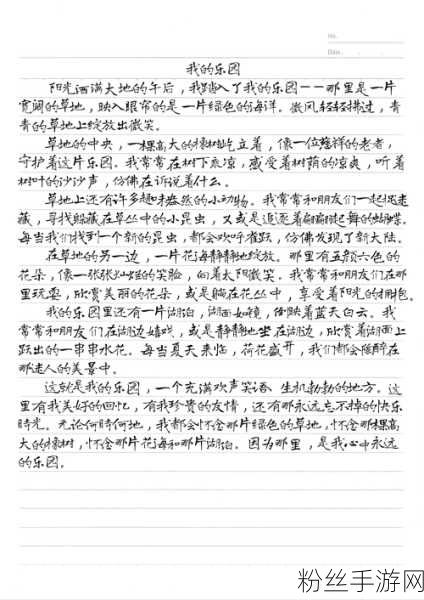 No.
Date
我的乐园
阳光洒满大地的午后，我踏入了我的乐园——那里是一片
宽阔的草地，映入眼帘的是一片绿色的海洋。微风轻轻拂过，青
青的草地上绽放出微笑。
草地的中央，一棵高大的橡树屹立着，像一位慈祥的老者，
守护着这片乐园。我常常在树下乘凉，感受着树荫的凉爽，听着
树叶的沙沙声，仿佛在诉说着什么。
草地上还有许多趣味盎然的小动物。我常常和朋友们一起捉迷
藏，寻找躲藏在草丛中的小昆虫，又或是追逐着翩翩起舞的蝴蝶。
每当我们找到一个新的昆虫，都会欢呼雀跃，仿佛发现了新大陆。
在草地的另一边，一片花海静静地绽放。那里有五颜六色的
花朵，像一张张灿烂的笑脸，向着太阳微笑。我常常和朋友们在那
里玩耍，欣赏美丽的花朵，或是躺在花丛中，享受着阳光的拥抱。
我的乐园里还有一片湖泊，湖面如镜，倒映着蓝天白云。我
常常和朋友们在湖边嬉戏，或是静静地坐在湖边，欣赏着湖面上
跃出的一串串水花。每当夏天来临，荷花盛开，我们都会陶醉在
那迷人的美景中。
这就是我的乐园，一个充满欢声笑语、生机勃勃的地方。这
里有我美好的回忆，有我珍贵的友情，还有那永远忘不掉的快乐
时光。无论何时何地，我都会怀念那片绿色的草地，怀念那棵高
大的橡树，怀念那片花海和那片湖泊。因为那里，是我心中永远
的乐园。
粉丝手游网